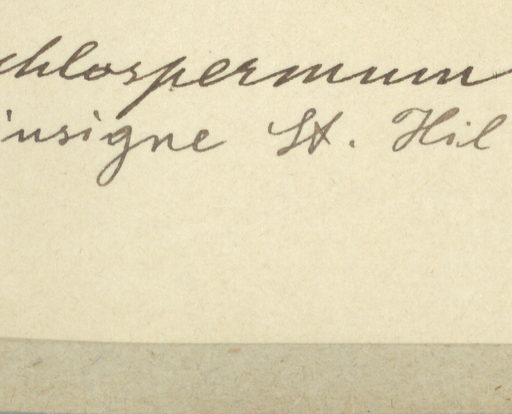 chlospermum
insigne St. Hil